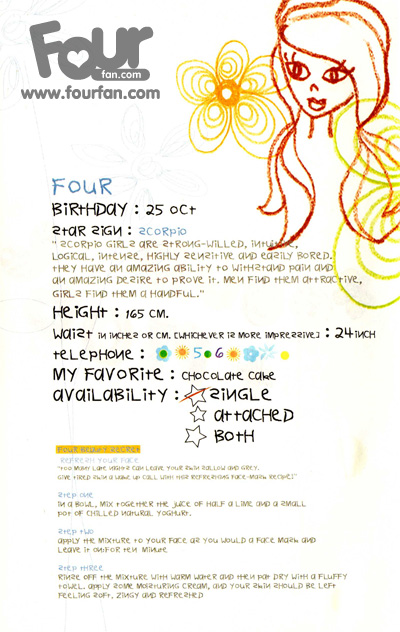 Four
fan.com
www.fourfan.com
FOUR
BIRTHDAY : 25 OCT
STAR SIGN : SCORPIO
" SCORPIO GIRLS ARE STRONG-WILLED, INTUITIVE,
LOGICAL, INTENSE, HIGHLY SENSITIVE AND EASILY BORED.
THEY HAVE AN AMAZING ABILITY TO WITHSTAND PAIN AND
AN AMAZING DESIRE TO PROVE IT. MEN FIND THEM ATTRACTIVE,
GIRLS FIND THEM A HANDFUL."
HEIGHT : 165 CM.
WAIST IN INCHES OR CM. (WHICHEVER IS MORE IMPRESSIVE) : 24 INCH
TELEPHONE : 5 6
MY FAVORITE : CHOCOLATE CAKE
AVAILABILITY : SINGLE
ATTACHED
BOTH
FOUR BEAUTY SECRET
REFRESH YOUR FACE
"TOO MANY LATE NIGHTS CAN LEAVE YOUR SKIN SALLOW AND GREY.
GIVE TIRED SKIN A WAKE UP CALL WITH THIS REFRESHING FACE-MASK RECIPE!"
STEP ONE
IN A BOWL, MIX TOGETHER THE JUICE OF HALF A LIME AND A SMALL
POT OF CHILLED NATURAL YOGHURT.
STEP TWO
APPLY THE MIXTURE TO YOUR FACE AS YOU WOULD A FACE MASK AND
LEAVE IT ON FOR TEN MINUTE
STEP THREE
RINSE OFF THE MIXTURE WITH WARM WATER AND THEN PAT DRY WITH A FLUFFY
TOWEL. APPLY SOME MOISTURING CREAM, AND YOUR SKIN SHOULD BE LEFT
FEELING SOFT, ZINGY AND REFRESHED